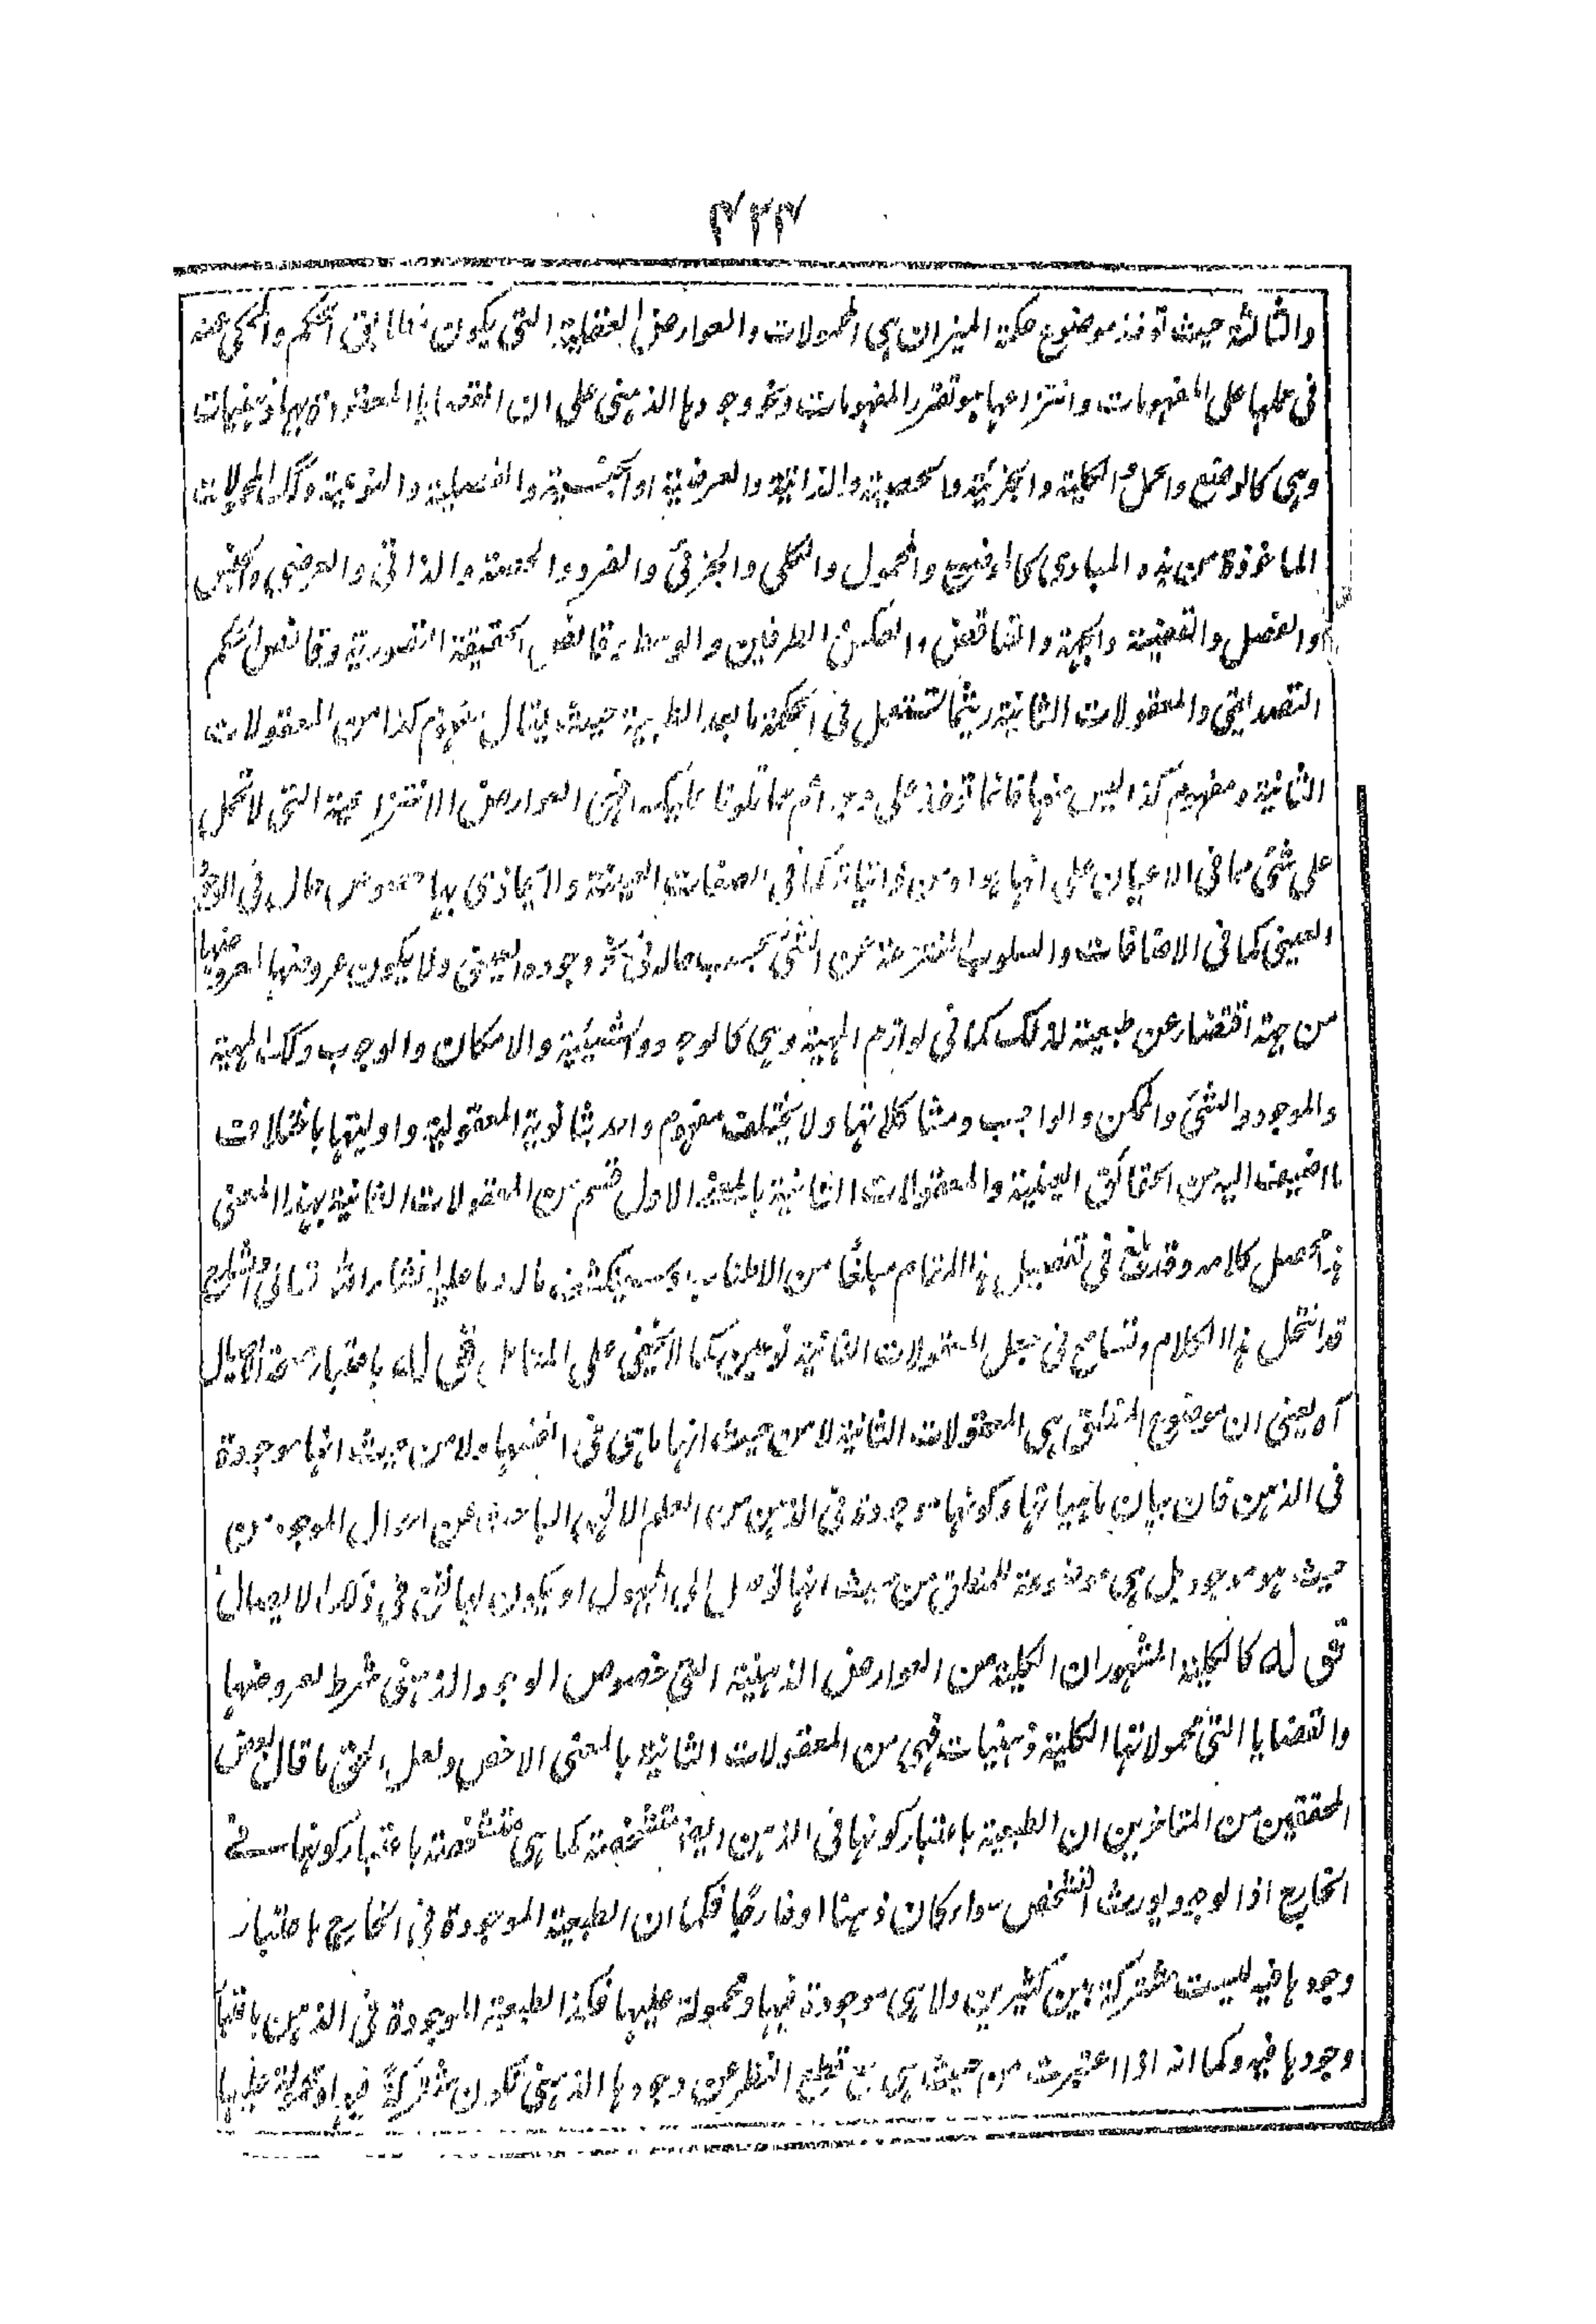 ۴۳۴
والثالثة حيث تؤخذ موضوع حكمة الميزان هى المحمولات والعوارض العقلية التى يكون مطابق الحكم والمحكى عنه
فى حملها على المفهومات وانتزاعها هو تقرر المفهومات ونحو وجودها الذهنى على ان القضايا المعقودة بها ذهنيات
وهى كالوضع والحمل والكلية والجزئية والحصية والذاتية والعرضية او الجنسية والفصلية والنوعية وكك المحمولات
الماخوذة من هذه المبادى كالموضوع والمحمول والكلى والجزئى والفرد والحصة والذاتى والعرضى والجنس
والفصل والقضية والجهة والتناقض والعكس الطرفين والوسط الحقيقة التصورية الحكم
التصديقى والمعقولات الثانية ربما تستعمل فى الحكمة ما بعد الطبيعة حيث يقال مفهوم كذا من المعقولات
الثانية ومفهوم كذا ليس منها فانما تؤخذ على وجه اعم مما تلونا عليك فهى العوارض الانتزاعية التى لا تحمل
على شئ مما فى الاعيان على انها هو او من ذاتياته كما فى الصفات العينية ولا يحاذى بها حال فى الوجود
العينى كما فى الاضافات والسلوب المنتزعة عن الشئ بحسب حاله فى نحو وجوده العينى ولا يكون عروضها لمعروضها
من جهة اقتضاء عن طبيعة لذلك كما فى لوازم المهية وهى كالوجود والشيئية والامكان والوجوب وكك المهية
والموجود والشئ والممكن والواجب ومشاكلاتها ولا يختلف مفهوم واحد بثانوية المعقولية واوليتها باختلاف
ما اضيف اليه من الحقائق العينية والمعقولات الثانية بالمعنى الاول قسم من المعقولات الثانية بهذا المعنى
هذا محصل كلامه وقد بلغ فى تفصيل هذا المقام مبلغا من الاطناب وسينكشف ماله وما عليه انشاء الله تعالى والشارح
قد انتحل هذا الكلام وتسامح فى جعل المعقولات الثانية نوعين كما لا يخفى على المتامل قوله باعتبار صحة الايصال
آه يعنى ان موضوع المنطق هى المعقولات الثانية لا من حيث انها ماهى فى انفسها ولا من حيث انها موجودة
فى الذهن فان بيان ماهياتها وكونها موجودة فى الذهن من العلم الالهى الباحث عن احوال الموجود من
حيث هو موجود بل هى موضوعة للمنطق من حيث انها توصل الى المجهول او يكون لها نفع فى ذلك الايصال
قوله كالكلية المشهور ان الكلية من العوارض الذهنية التى خصوص الوجود الذهنى شرط لعروضها
والقضايا التى محمولاتها الكلية ذهنيات فهى من المعقولات الثانية بالمعنى الاخص ولعل الحق ما قال بعض
المحققين من المتاخرين ان الطبيعة باعتبار كونها فى الذهن ايضا متشخصة كما هى متشخصة باعتبار كونها فى
الخارج اذ الوجود يورث التشخص سواء كان ذهنا او خارجا فكما ان الطبيعة الموجودة فى الخارج باعتبار
وجودها فيه ليست مشتركة بين كثيرين ولا هى موجودة فيها ومحمولة عليها فكذا الطبيعة الموجودة فى الذهن باعتبار
وجودها فيه وكما انه اذا اعتبرت من حيث هى مع قطع النظر عن وجودها الذهنى تكون مشتركة فيها ومحمولة عليها